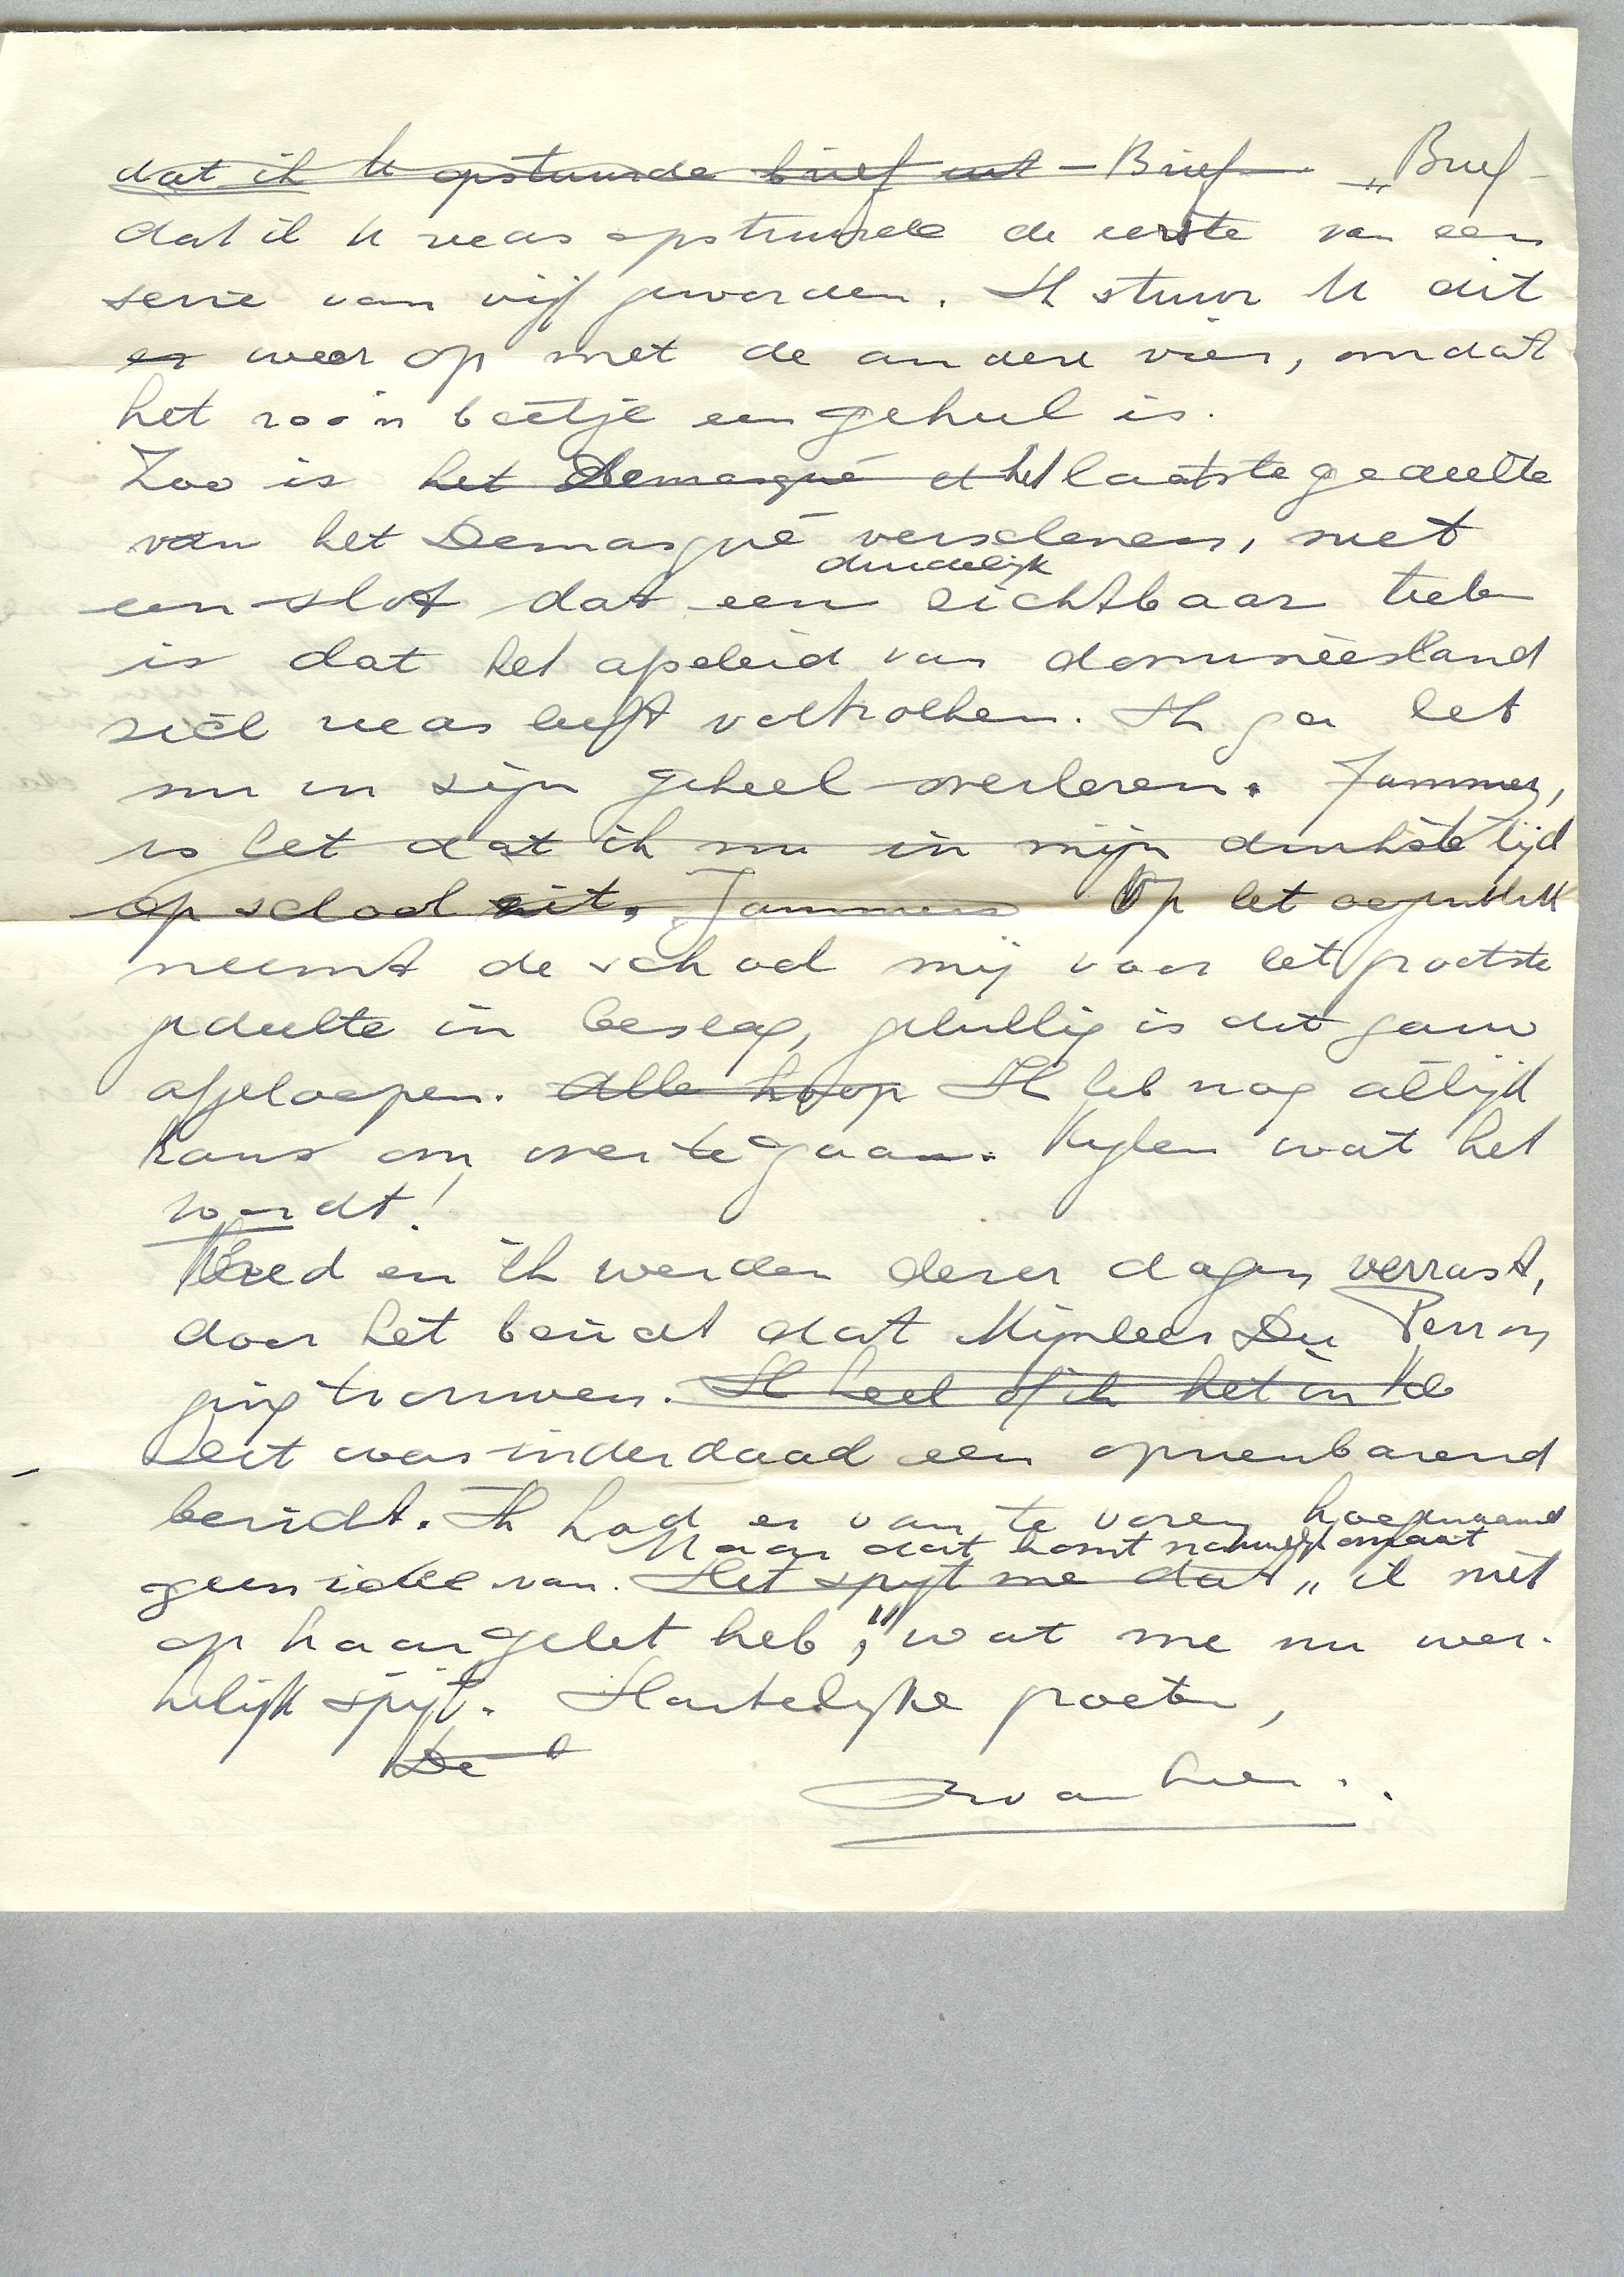 dat ik U opstuurde brief uit – Brief – „Brief –
dat ik U reeds opstuurde de eerste van een
serie van vijf geworden. Ik stuur U dit
er weer op met de andere vier, omdat
het zoo'n beetje een geheel is.
Zoo is het Demasqué et het laatste gedeelte
van het Demasqué verschenen, met
duidelijk
een slot dat een zichtbaar teeken
is dat het afscheid van domineesland
zich reeds heeft voltrokken. Ik ga het
nu in zijn geheel overlezen. Jammer,
is het dat ik nu in mijn drukste tijd
op school zit. Jammer Op het oogenblik
neemt de school mij voor het grootste
gedeelte in beslag, gelukkig is dit gauw
afgeloopen. Alle hoop Ik heb nog altijd
kans om over te gaan. Kijken wat het
wordt!
en ik werden dezer dagen verrast,
door het bericht dat Mijnheer Du Perron
ging trouwen. Ik heel of ik het in
Dit was inderdaad een opzienbarend
bericht. Ik had er van te voren hoegenaamd
Maar dat komt natuurlijk omdat
geen idee van. Het spijt me dat „ik niet
op haar gelet heb”, wat me nu wer-
kelijk spijt. Hartelijke groeten,
De